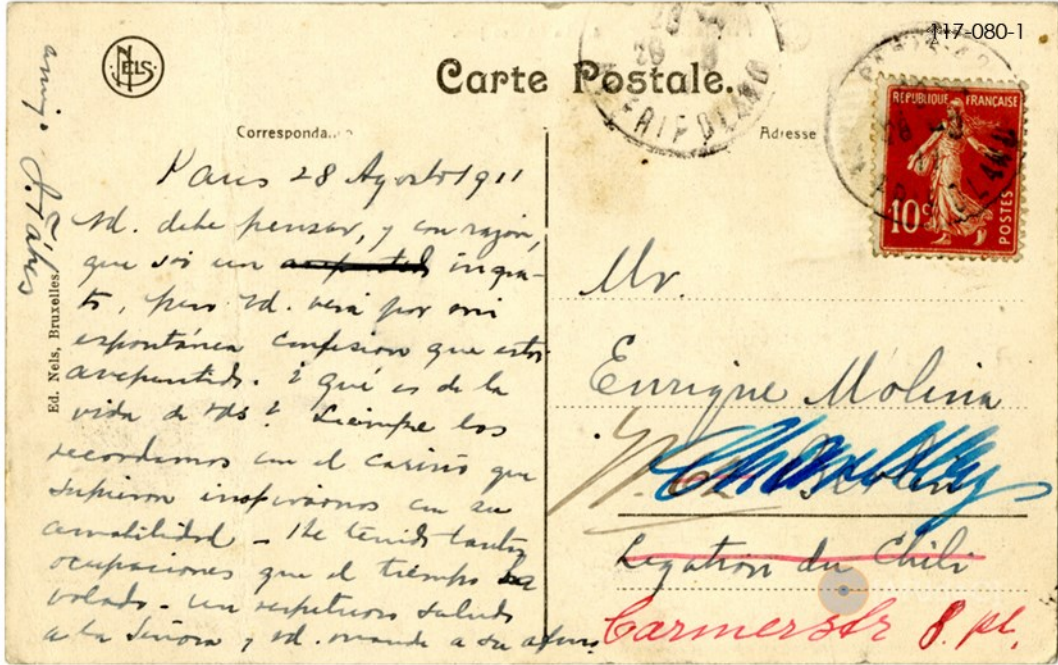 117-080-1
NELS
Carte Postale.
Corresponda
Adresse
REPUBLIQUE FRANÇAISE
10c
POSTES
Paris 28 Agosto 1911
Ud. debe pensar, y con razón,
que soi un ingra-
to, pero Ud. verá por mi
espontánea confesion que estoi
arrepentido. ¿Qué es de la
vida de Uds? Siempre los
recordamos con el cariño que
supieron inspirarnos con su
amabilidad - He tenido tantas
ocupaciones que el tiempo ha
volado. Un respetuoso saludo
a la Señora y Ud. mande a su afmo.
amigo
Ed. Nels, Bruxelles.
Mr.
Enrique Molina
Berlin
Legation du Chili
Carmerstr 8. pl.